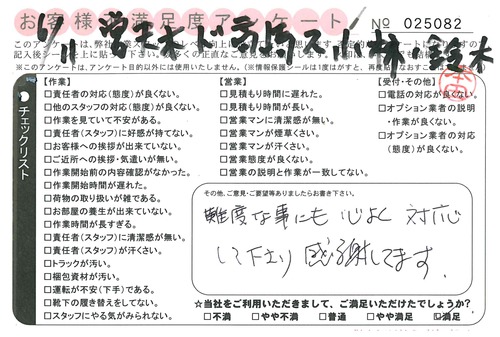 お客様満足度アンケート
№ 025082
チェックリスト
【作業】
□責任者の対応(態度)が良くない。
□他のスタッフの対応(態度)が良くない。
□作業を見ていて不安がある。
□責任者(スタッフ)に好感が持てない。
□お客様への挨拶が出来ていない。
□ご近所への挨拶・気遣いが無い。
□作業開始前の内容確認がなかった。
□作業開始時間が遅れた。
□荷物の取り扱いが雑である。
□お部屋の養生が出来ていない。
□作業時間が長すぎる。
□責任者(スタッフ)に清潔感が無い。
□責任者(スタッフ)が汗くさい。
□トラックが汚い。
□梱包資材が汚い。
□運転が不安(下手)である。
□靴下の履き替えをしてない。
□スタッフにやる気がみられない。
【営業】
□見積もり時間に遅れた。
□見積もり時間が長い。
□営業マンに清潔感が無い。
□営業マンが煙草くさい。
□営業マンが汗くさい。
□営業態度が良くない。
□営業の説明と作業が一致してない。
【受付・その他】
□電話の対応が良くない。
□オプション業者の説明
・作業が良くない。
□オプション業者の対応
(態度)が良くない。
その他、ご意見・ご要望等ありましたらお書き下さい。
難度な事にも 心よく 対応
して下さり 感謝してます。
☆当社をご利用いただきまして、ご満足いただけたでしょうか?
□不満 □やや不満 □普通 □やや満足 ☑満足